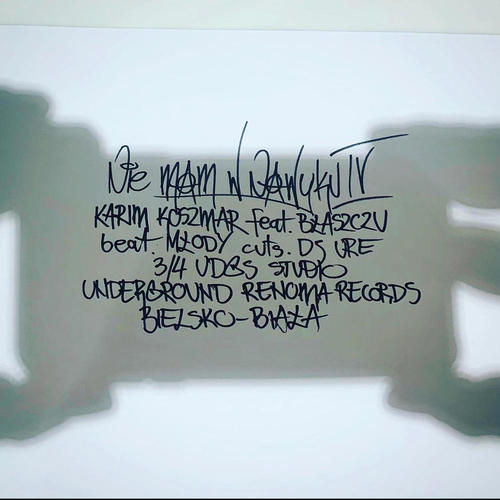 Nie mam w nawyku IV
KARIM KOSZMAR feat. BŁASZCZU
beat. MŁODY cuts. DJ URE
3/4 UDGS STUDIO
UNDERGROUND RENOMA RECORDS
BIELSKO-BIAŁA